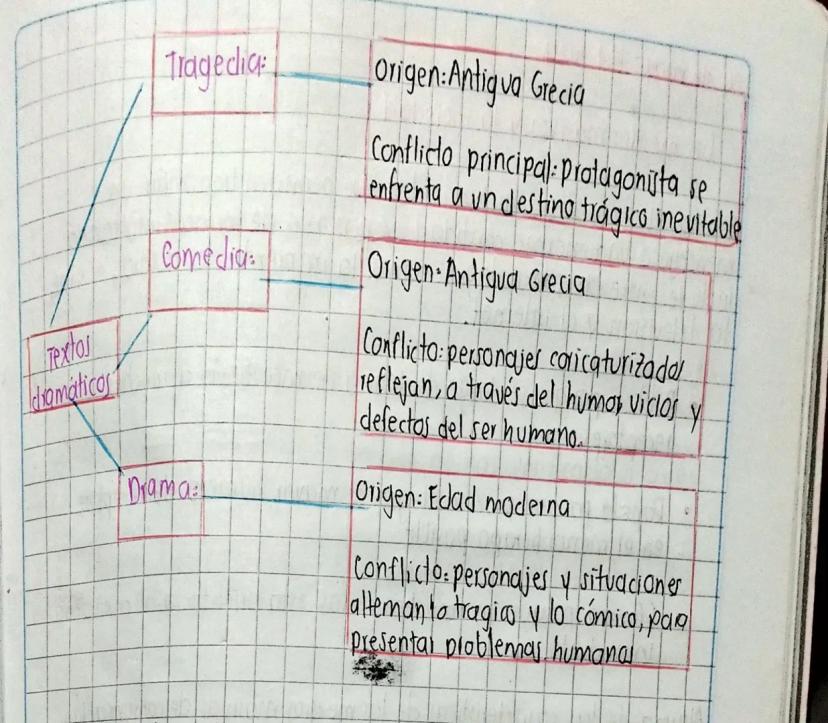 Tragedia:
Origen: Antigua Grecia
Conflicto principal: protagonista se
enfrenta a un destino trágico inevitable
Comedia:
Origen: Antigua Grecia
Conflicto: personajes caricaturizados
reflejan, a través del humor, vicios y
defectos del ser humano.
Textos
dramáticos
Drama:
Origen: Edad moderna
Conflicto: personajes y situaciones
alternan lo tragico y lo cómico, para
presentar problemas humanos